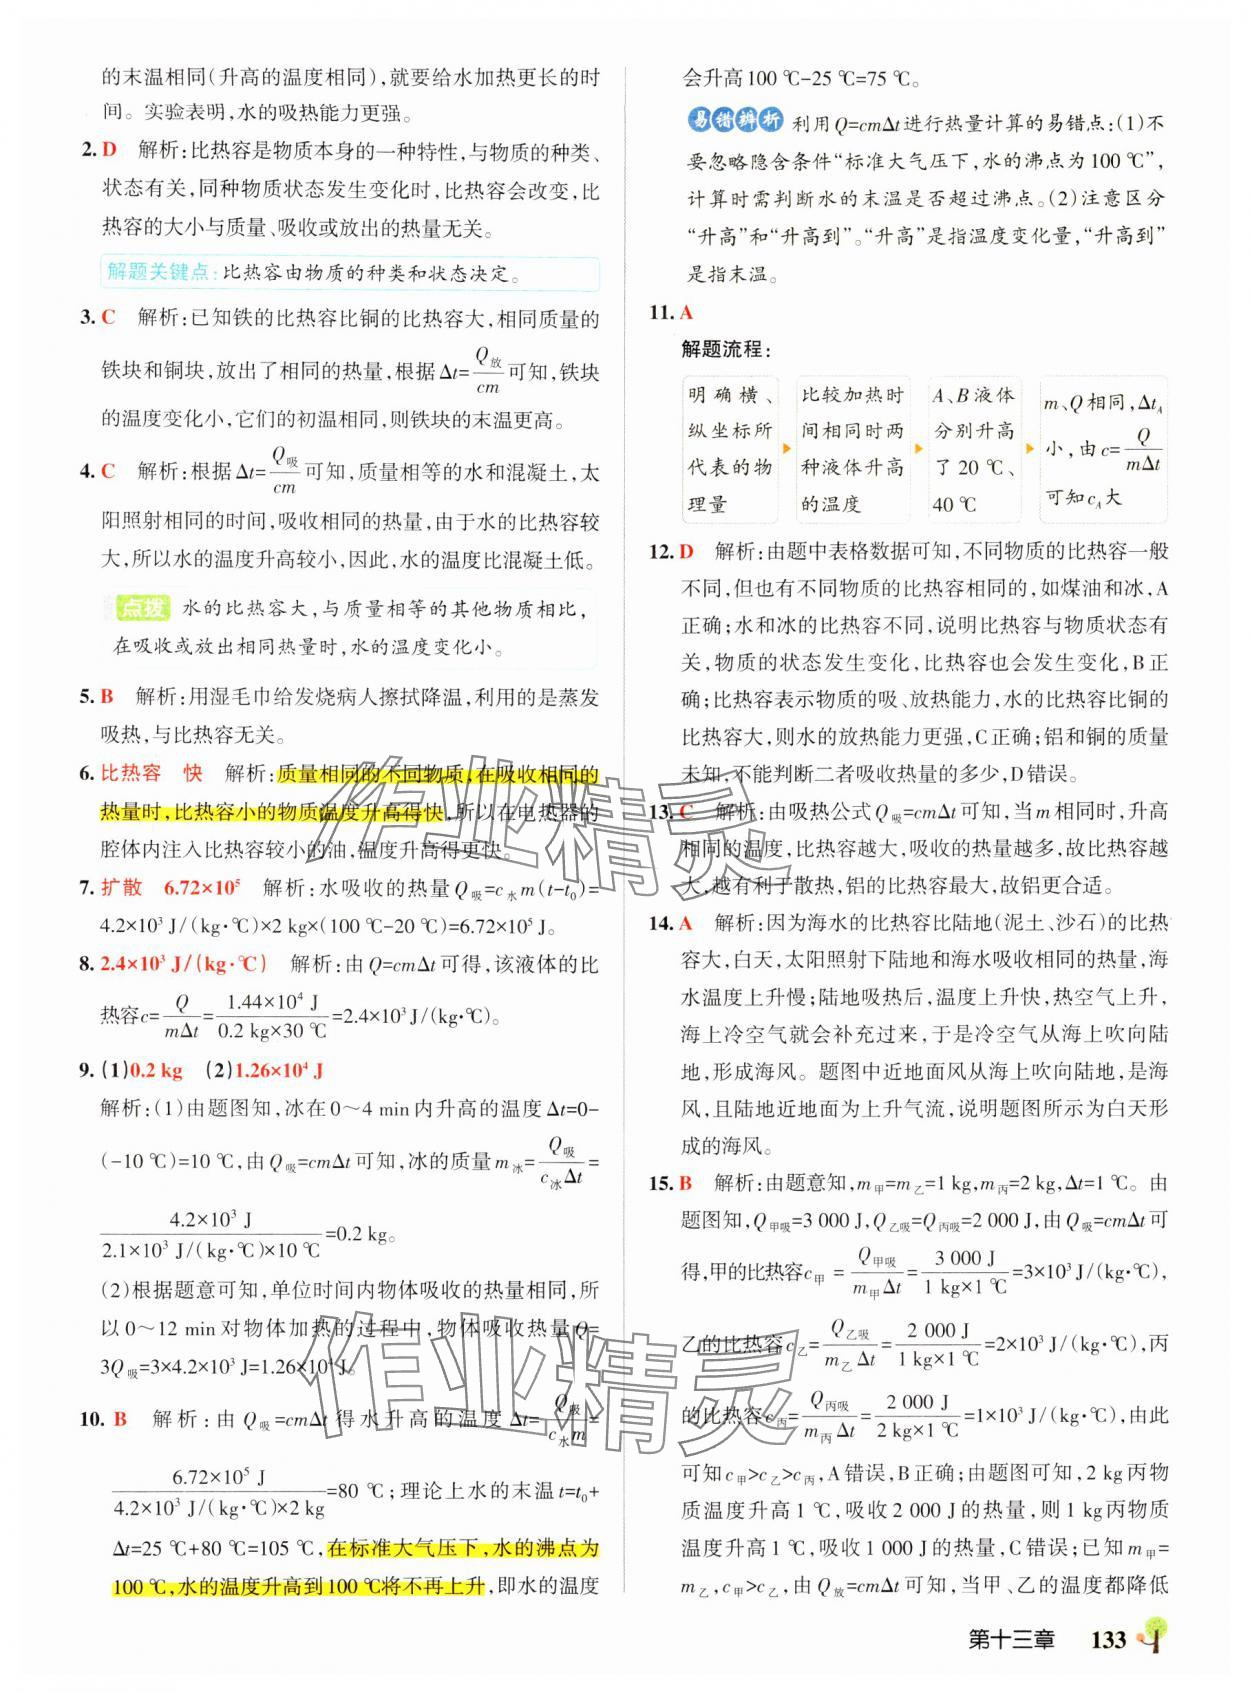 的末温相同(升高的温度相同),就要给水加热更长的时
间。实验表明,水的吸热能力更强。
2. D 解析:比热容是物质本身的一种特性,与物质的种类、
状态有关,同种物质状态发生变化时,比热容会改变,比
热容的大小与质量、吸收或放出的热量无关。
解题关键点:比热容由物质的种类和状态决定。
3. C 解析:已知铁的比热容比铜的比热容大,相同质量的
铁块和铜块,放出了相同的热量,根据 Δt=Q放/cm可知,铁块
的温度变化小,它们的初温相同,则铁块的末温更高。
4. C 解析:根据 Δt=Q吸/cm可知,质量相等的水和混凝土,太
阳照射相同的时间,吸收相同的热量,由于水的比热容较
大,所以水的温度升高较小,因此,水的温度比混凝土低。
点拨 水的比热容大,与质量相等的其他物质相比,
在吸收或放出相同热量时,水的温度变化小。
5. B 解析:用湿毛巾给发烧病人擦拭降温,利用的是蒸发
吸热,与比热容无关。
6. 比热容 快 解析:质量相同的不同物质,在吸收相同的
热量时,比热容小的物质温度升高得快,所以在电热器的
腔体内注入比热容较小的油,温度升高得更快。
7. 扩散 6.72×10⁵ 解析:水吸收的热量 Q吸=c水m(t-t₀)=
4.2×10³ J/(kg·℃)×2 kg×(100 ℃-20 ℃)=6.72×10⁵ J。
8. 2.4×10³ J/(kg·℃) 解析:由 Q=cmΔt 可得,该液体的比
热容c=Q/mΔt=1.44×10⁴ J/0.2 kg×30 ℃=2.4×10³ J/(kg·℃)。
9. (1)0.2 kg (2)1.26×10⁴ J
解析:(1)由题图知,冰在 0～4 min 内升高的温度 Δt=0-
(-10 ℃)=10 ℃,由 Q吸=cmΔt 可知,冰的质量 m冰=Q吸/c冰Δt=
4.2×10³ J/2.1×10³ J/(kg·℃)×10 ℃=0.2 kg。
(2)根据题意可知,单位时间内物体吸收的热量相同,所
以 0～12 min 对物体加热的过程中,物体吸收热量 Q=
3Q吸=3×4.2×10³ J=1.26×10⁴ J。
10. B 解析:由 Q吸=cmΔt 得水升高的温度 Δt=Q吸/c水m=
6.72×10⁵ J/4.2×10³ J/(kg·℃)×2 kg=80 ℃;理论上水的末温 t=t₀+
Δt=25 ℃+80 ℃=105 ℃,在标准大气压下,水的沸点为
100 ℃,水的温度升高到 100 ℃将不再上升,即水的温度
会升高 100 ℃-25 ℃=75 ℃。
易错辨析 利用 Q=cmΔt 进行热量计算的易错点:(1)不
要忽略隐含条件“标准大气压下,水的沸点为 100 ℃”,
计算时需判断水的末温是否超过沸点。(2)注意区分
“升高”和“升高到”。“升高”是指温度变化量,“升高到”
是指末温。
11. A
解题流程:
明确横、
纵坐标所
代表的物
理量
比较加热时
间相同时两
种液体升高
的温度
A、B 液体
分别升高
了 20 ℃、
40 ℃
m、Q 相同,Δt_A
小,由 c=Q/mΔt
可知 c_A 大
12. D 解析:由题中表格数据可知,不同物质的比热容一般
不同,但也有不同物质的比热容相同的,如煤油和冰,A
正确;水和冰的比热容不同,说明比热容与物质状态有
关,物质的状态发生变化,比热容也会发生变化,B 正
确;比热容表示物质的吸、放热能力,水的比热容比铜的
比热容大,则水的放热能力更强,C 正确;铝和铜的质量
未知,不能判断二者吸收热量的多少,D 错误。
13. C 解析:由吸热公式 Q吸=cmΔt 可知,当 m 相同时,升高
相同的温度,比热容越大,吸收的热量越多,故比热容越
大,越有利于散热,铝的比热容最大,故铝更合适。
14. A 解析:因为海水的比热容比陆地(泥土、沙石)的比热
容大,白天,太阳照射下陆地和海水吸收相同的热量,海
水温度上升慢;陆地吸热后,温度上升快,热空气上升,
海上冷空气就会补充过来,于是冷空气从海上吹向陆
地,形成海风。题图中近地面风从海上吹向陆地,是海
风,且陆地近地面为上升气流,说明题图所示为白天形
成的海风。
15. B 解析:由题意知,m甲=m乙=1 kg,m丙=2 kg,Δt=1 ℃。由
题图知,Q甲吸=3 000 J,Q乙吸=Q丙吸=2 000 J,由 Q吸=cmΔt 可
得,甲的比热容c甲=Q甲吸/m甲Δt=3 000 J/1 kg×1 ℃=3×10³ J/(kg·℃),
乙的比热容c乙=Q乙吸/m乙Δt=2 000 J/1 kg×1 ℃=2×10³ J/(kg·℃),丙
的比热容c丙=Q丙吸/m丙Δt=2 000 J/2 kg×1 ℃=1×10³ J/(kg·℃),由此
可知 c甲>c乙>c丙,A 错误,B 正确;由题图可知,2 kg 丙物
质温度升高 1 ℃,吸收 2 000 J 的热量,则 1 kg 丙物质
温度升高 1 ℃,吸收 1 000 J 的热量,C 错误;已知 m甲=
m乙,c甲>c乙,由 Q放=cmΔt 可知,当甲、乙的温度都降低
第十三章 133
作业精灵
作业精灵